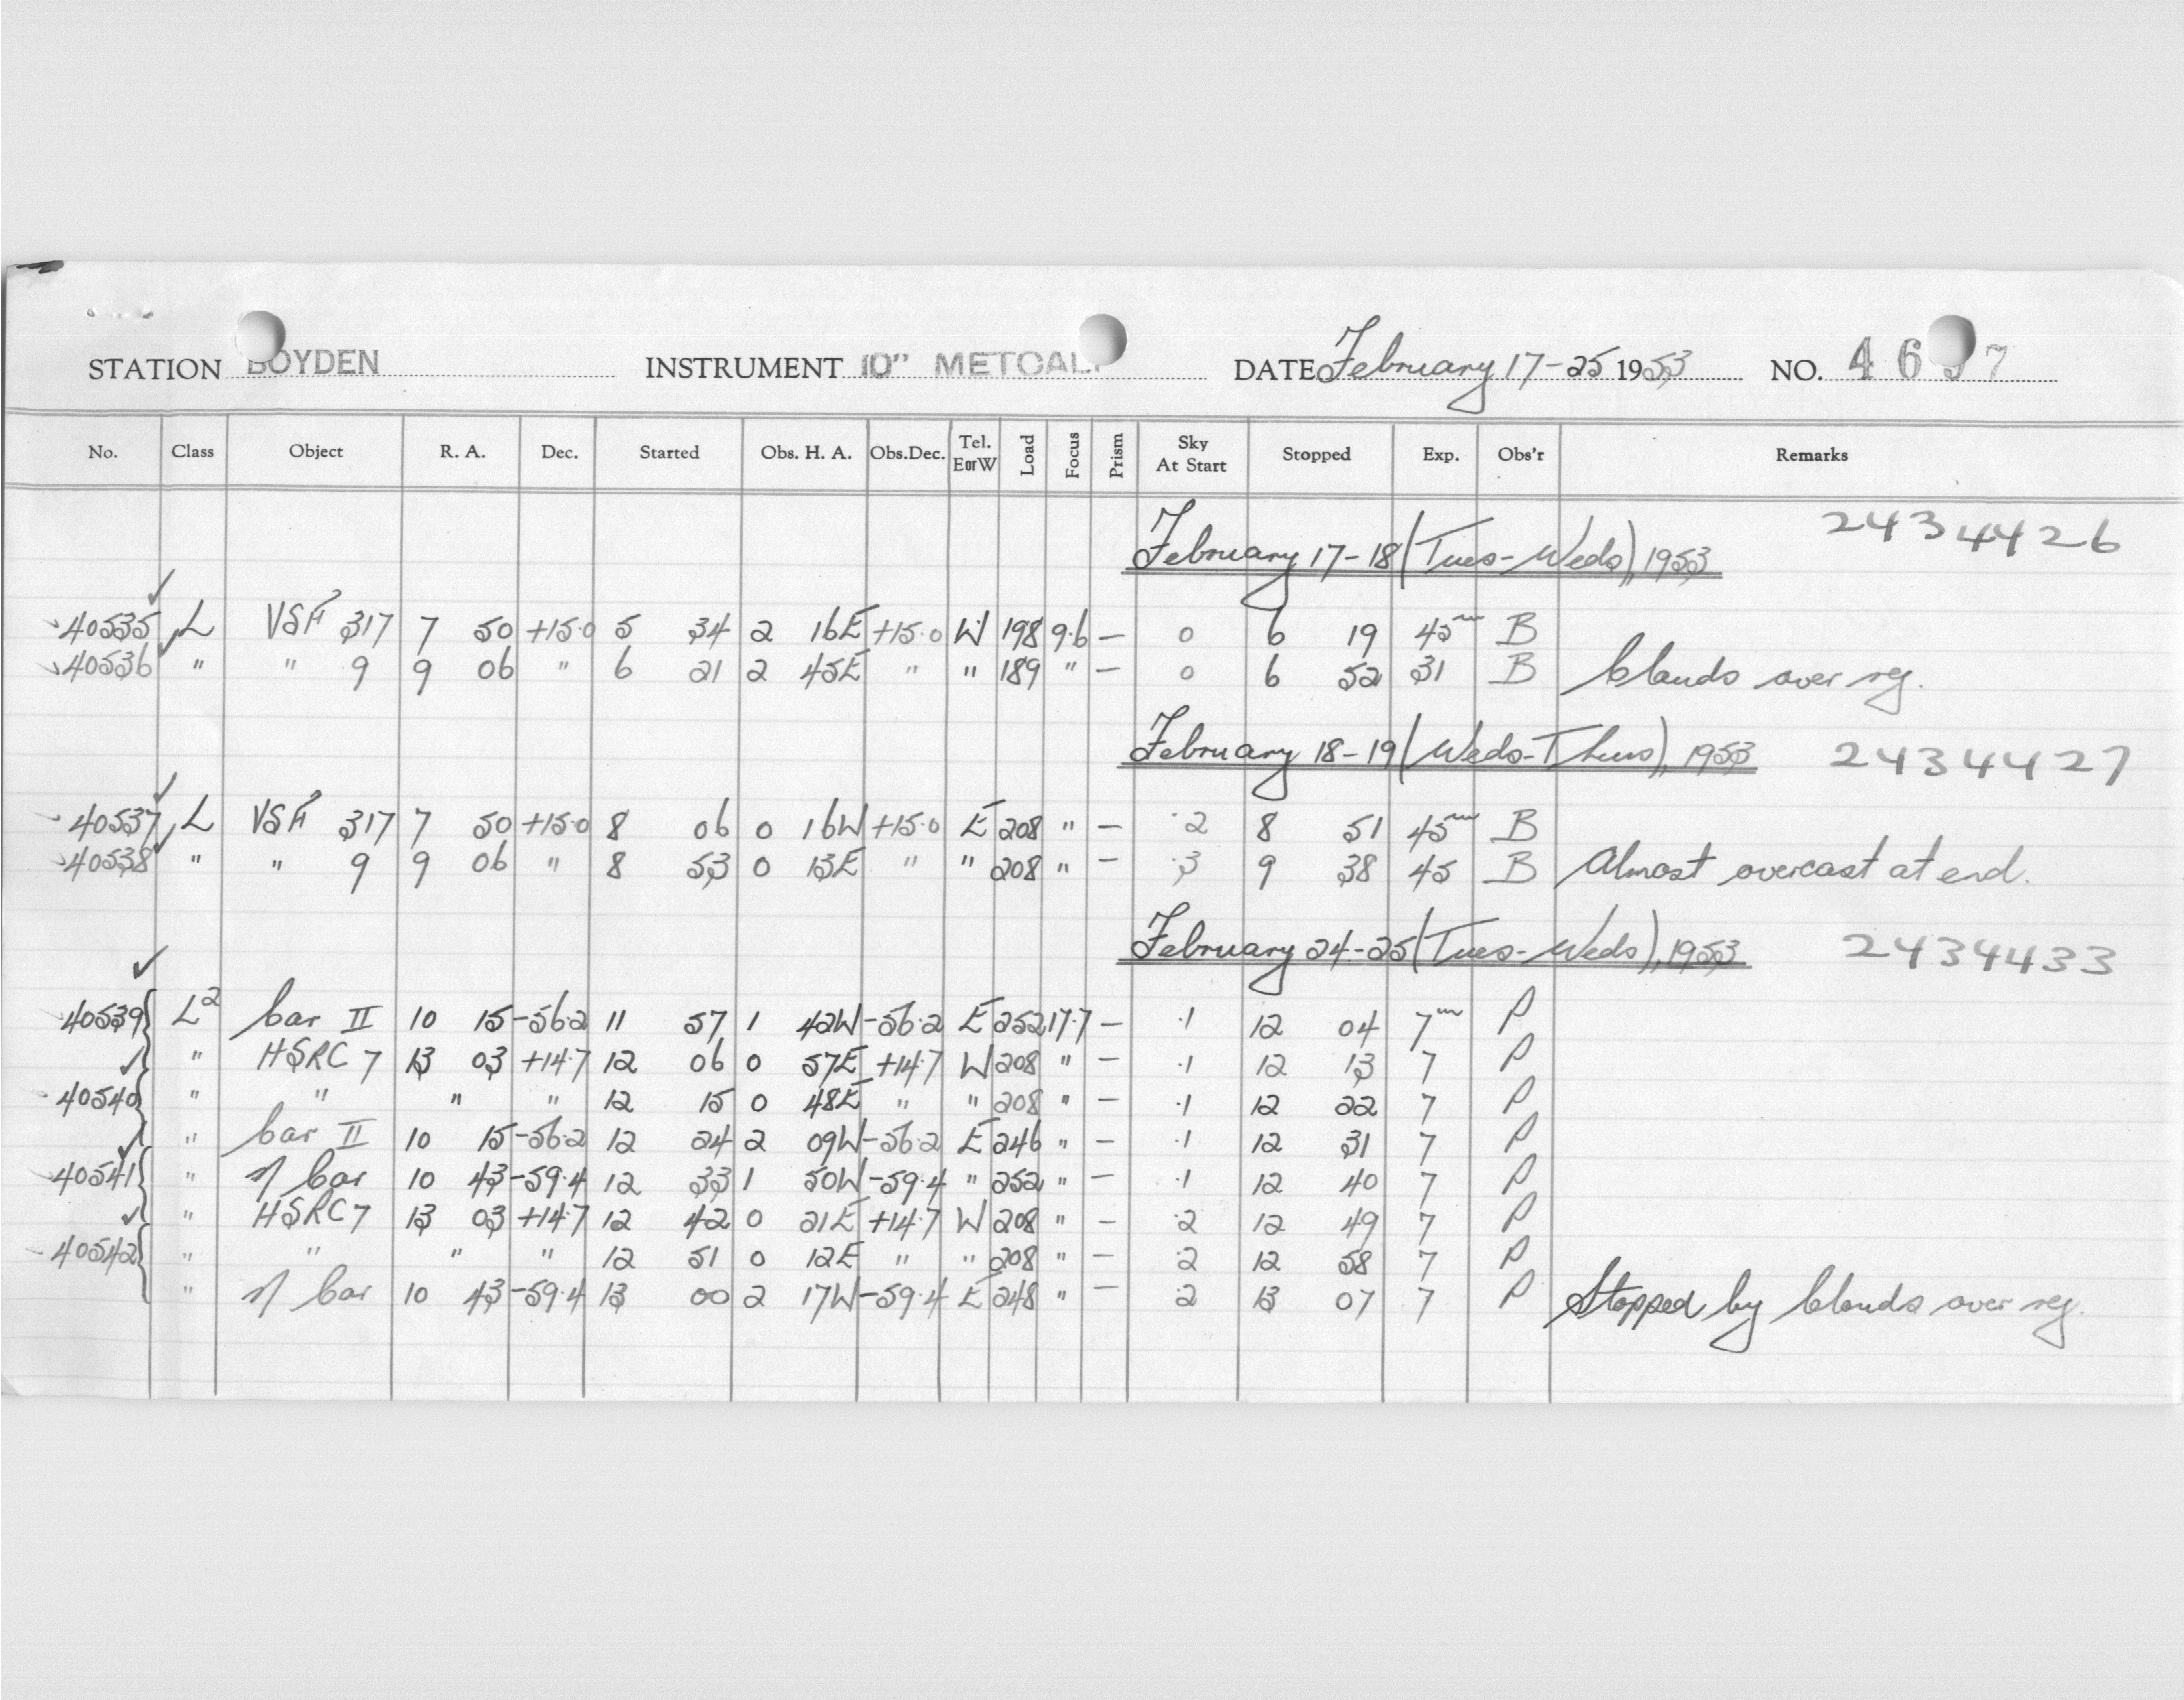 STATION BOYDEN INSTRUMENT 10" METCALF DATE February 17-25 1953 NO. 4697
No. Class Object R. A. Dec. Started Obs. H. A. Obs.Dec. Tel. E or W Load Focus Prism Sky At Start Stopped Exp. Obs'r Remarks
February 17-18 (Tues-Weds), 1953 2434426
40535 L VSF 317 7 50 +15.0 5 34 2 16E +15.0 W 198 9.6 — 0 6 19 45m B
40536 " " 9 9 06 " 6 21 2 45E " " 189 " — 0 6 52 31 B Clouds over reg.
February 18-19 (Weds-Thurs), 1953 2434427
40537 L VSF 317 7 50 +15.0 8 06 0 16W +15.0 E 208 " — .2 8 51 45m B
40538 " " 9 9 06 " 8 53 0 13E " " 208 " — .3 9 38 45 B Almost overcast at end.
February 24-25 (Tues-Weds), 1953 2434433
40539 L² Car II 10 15 -56.2 11 57 1 42W -56.2 E 252 17.7 — .1 12 04 7m P
" HSRC 7 13 03 +14.7 12 06 0 57E +14.7 W 208 " — .1 12 13 7 P
40540 " " " " 12 15 0 48E " " 208 " — .1 12 22 7 P
" Car II 10 15 -56.2 12 24 2 09W -56.2 E 246 " — .1 12 31 7 P
40541 " η Car 10 43 -59.4 12 33 1 50W -59.4 " 252 " — .1 12 40 7 P
" HSRC 7 13 03 +14.7 12 42 0 21E +14.7 W 208 " — .2 12 49 7 P
40542 " " " " 12 51 0 12E " " 208 " — .2 12 58 7 P
" η Car 10 43 -59.4 13 00 2 17W -59.4 E 248 " — .2 13 07 7 P Stopped by Clouds over reg.